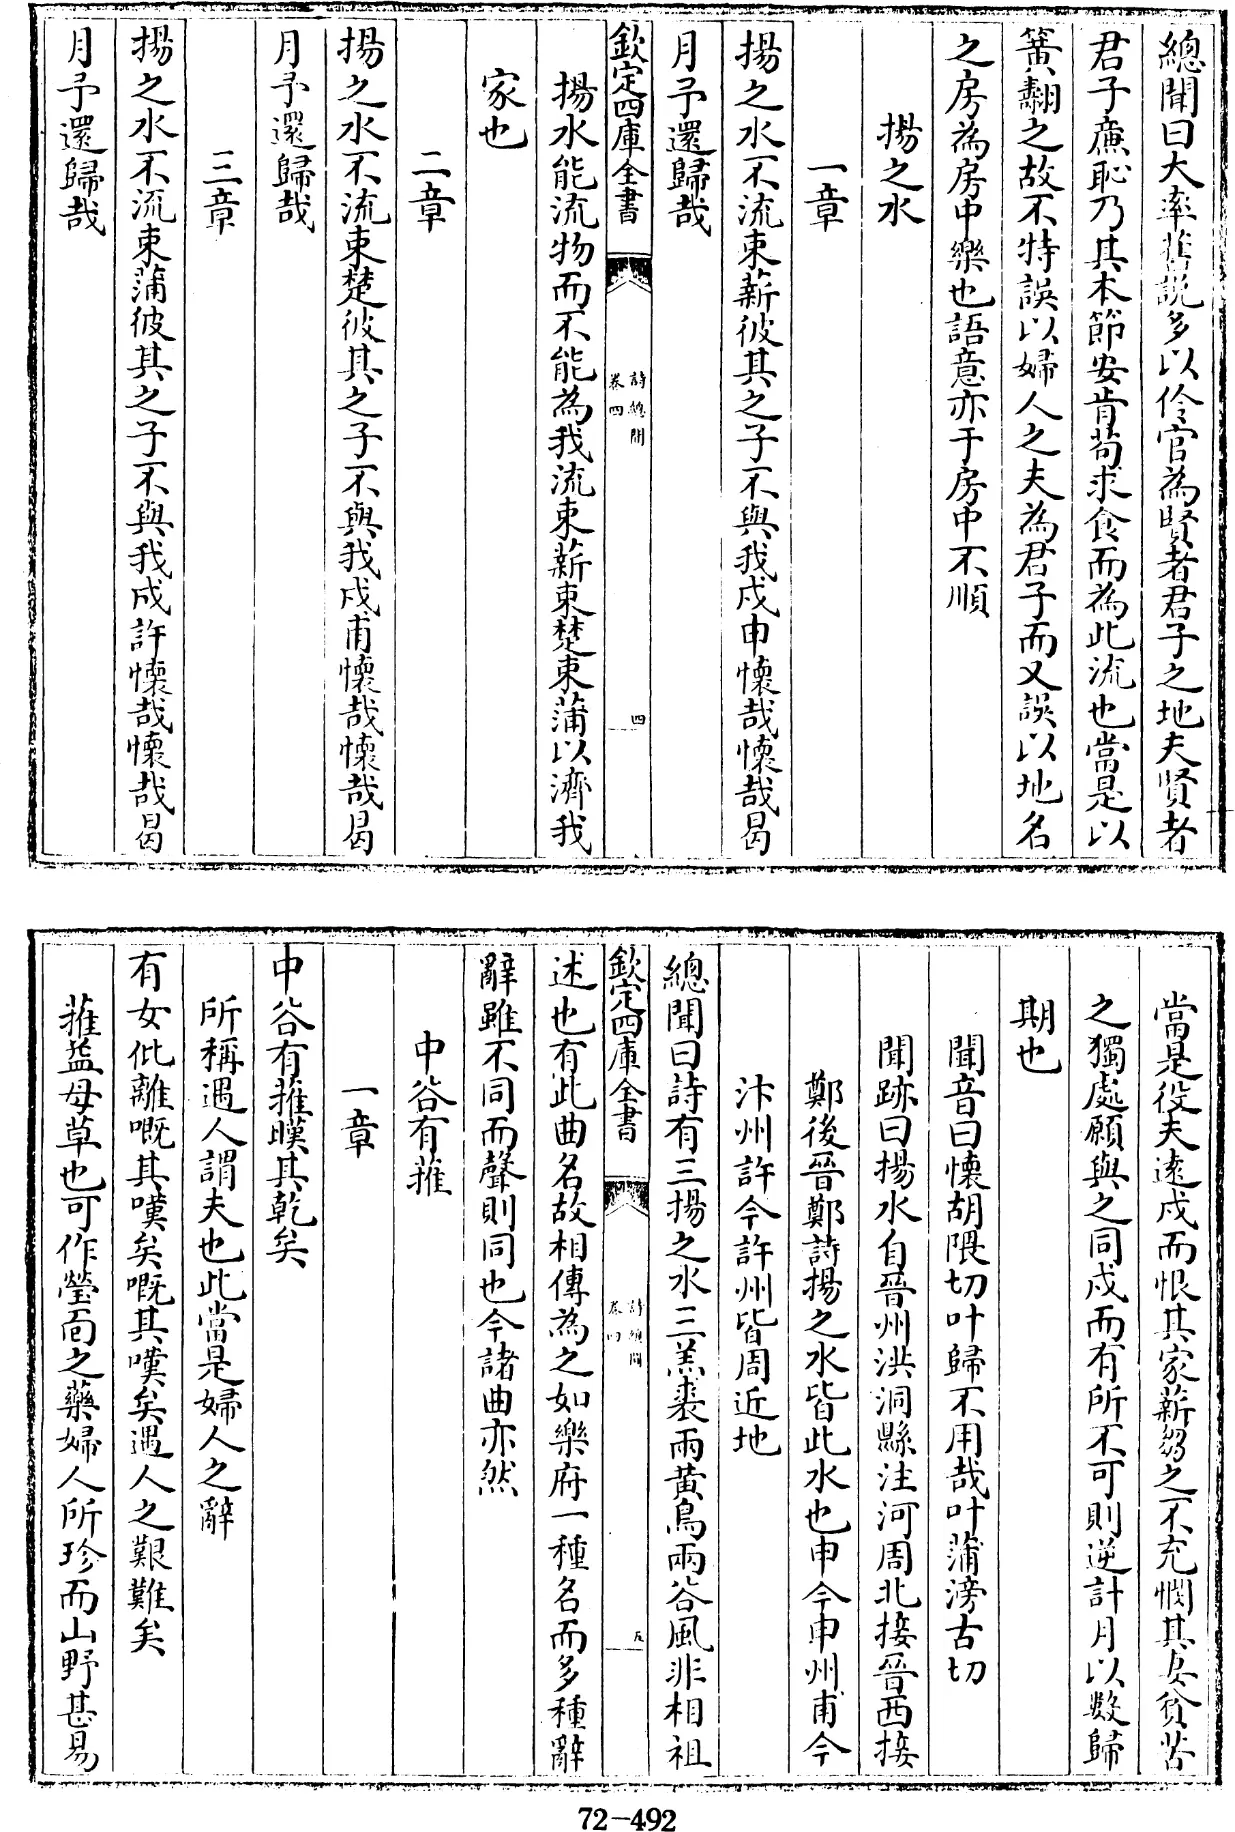 總聞曰大率舊説多以伶官為賢者君子之地夫賢者
君子廉恥乃其本節安肯苟求食而為此流也當是以
簧翿之故不特誤以婦人之夫為君子而又誤以地名
之房為房中樂也語意亦于房中不順
揚之水
一章
揚之水不流束薪彼其之子不與我戍申懷哉懷哉曷
月予還歸哉
欽定四庫全書
詩總聞
卷四
四
揚水能流物而不能為我流束薪束楚束蒲以濟我
家也
二章
揚之水不流束楚彼其之子不與我戍甫懷哉懷哉曷
月予還歸哉
三章
揚之水不流束蒲彼其之子不與我戍許懷哉懷哉曷
月予還歸哉
當是役夫逺戍而恨其家薪芻之不充憫其妻貧苦
之獨處願與之同戍而有所不可則逆計月以數歸
期也
聞音曰懷胡隈切叶歸不用哉叶蒲滂古切
聞跡曰揚水自晉州洪洞縣注河周北接晉西接
鄭後晉鄭詩揚之水皆此水也申今申州甫今
汴州許今許州皆周近地
總聞曰詩有三揚之水三羔裘兩黄鳥兩谷風非相祖
欽定四庫全書
詩總聞
卷四
五
述也有此曲名故相傳為之如樂府一種名而多種辭
辭雖不同而聲則同也今諸曲亦然
中谷有蓷
一章
中谷有蓷暵其乾矣
所稱遇人謂夫也此當是婦人之辭
有女仳離嘅其嘆矣嘅其嘆矣遇人之艱難矣
蓷益母草也可作瑩面之藥婦人所珍而山野甚易
72-492